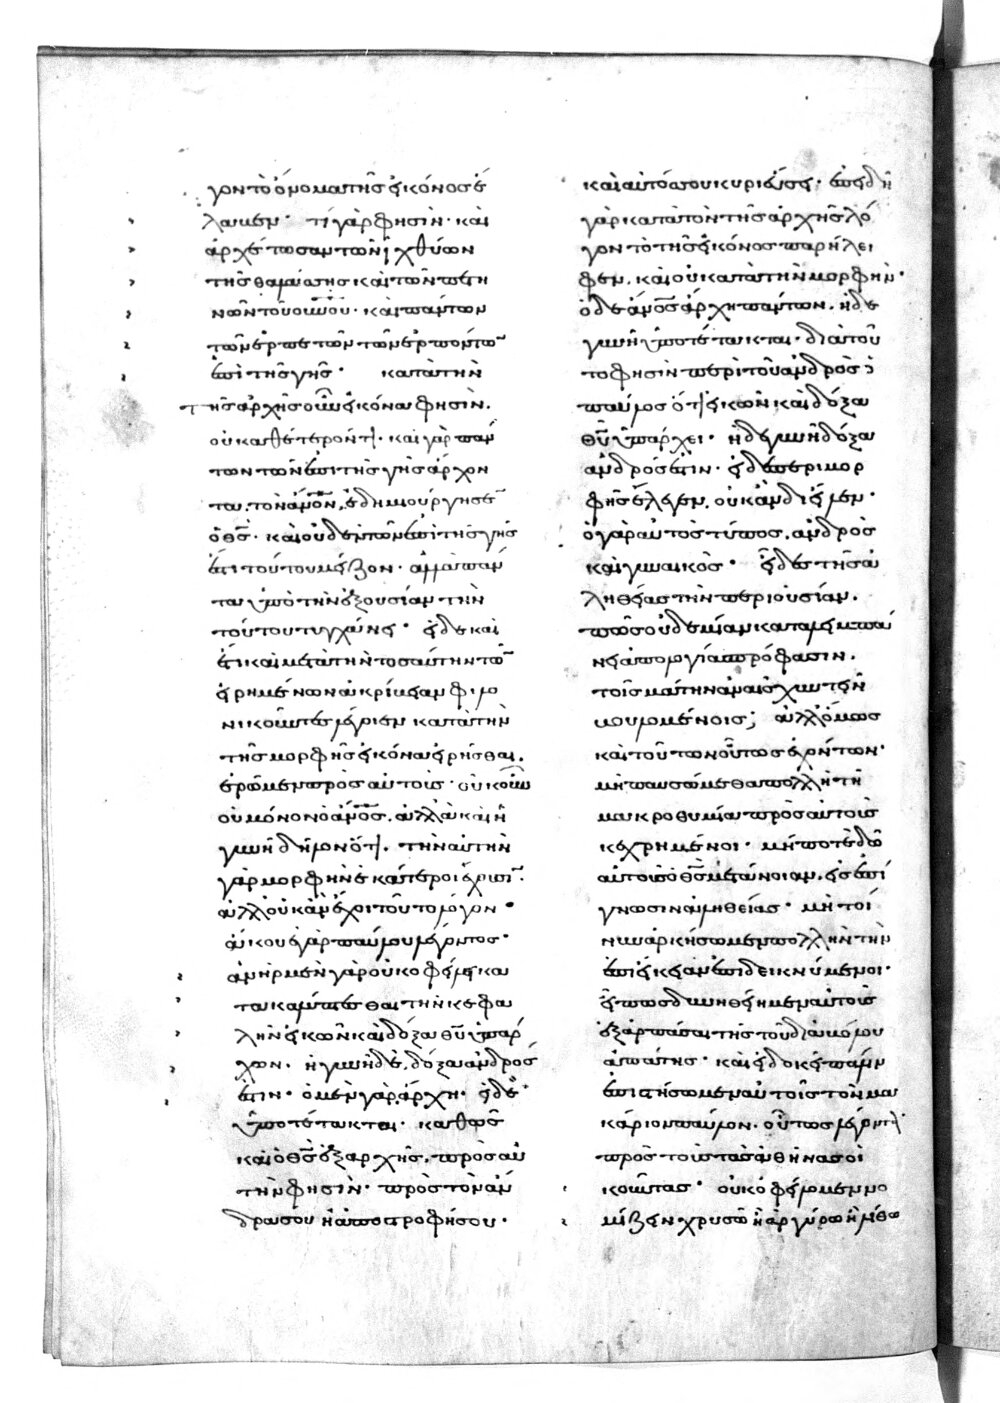 γον τὸ ὄνομα τῆς εἰκόνος ἔ
λαβεν· τί γάρ φησιν· καὶ
ἀρχέτωσαν τῶν ἰχθύων
τῆς θαλάσσης καὶ τῶν πετη
νῶν τοῦ οὐνοῦ· καὶ πάντων
τῶν ἑρπετῶν τῶν ἑρπόντω
ἐπὶ τῆς γῆς· κατὰ τὴν
τῆς ἀρχῆς οὖν εἰκόνα φησὶν.
οὐ καθ' ἕτερόν τι· καὶ γὰρ πάν
των τῶν ἐπὶ τῆς γῆς ἄρχον
τα τὸν ἄνον, ἐδημιούργησεν
ὁ θς· καὶ οὐδὲν τῶν ἐπὶ τῆς γῆς
ἐστι τούτου μεῖζον· ἀλλὰ πάν
τα ὑπὸ τὴν ἐξουσίαν τὴν
τούτου τυγχάνει· εἰ δὲ καὶ
ἔτι καὶ μετὰ τὴν τοσαύτην τῶν
εἰρημένων ἀκρίβειαν φιλο
νικοῦντες λέγοιεν κατὰ τὴν
τῆς μορφῆς εἰκόνα εἰρῆσθαι.
ἐροῦμεν πρὸς αὐτοὺς· οὐκοῦν
οὐ μόνον ὁ ἄνος, ἀλλὰ καὶ ἡ
γυνὴ δῆλον ὅτι. τὴν αὐτὴν
γὰρ μορφὴν ἑκάτεροι ἔχουσι·
ἀλλ' οὐκ ἂν ἔχοι τοῦτο λόγον·
ἄκουε γὰρ παύλου λέγοντος·
ἀνὴρ μὲν γὰρ οὐκ ὀφείλει κα
τακαλύπτεσθαι τὴν κεφα
λὴν εἰκὼν καὶ δόξα θυ ὑπάρ
χων. ἡ γυνὴ δὲ, δόξα ἀνδρός
ἐστιν· ὁ μὲν γὰρ, ἄρχει· ἡ δὲ
ὑποτέτακται· καθὼς
καὶ ὁ θς ἐξ ἀρχῆς, πρὸς αὐ
τὴν φησὶν· πρὸς τὸν ἄν
δρα σου ἡ ἀποστροφή σου·
καὶ αὐτός σου κυριεύσει· ἐπειδὴ
γὰρ κατὰ τὸν τῆς ἀρχῆς λό
γον τὸ τῆς εἰκόνος παρείλη
φεν, καὶ οὐ κατὰ τὴν μορφὴν·
ὁ δὲ ἄνος ἄρχει πάντων. ἡ δὲ
γυνὴ ὑποτέτακται· διὰ τοῦ
το φησὶν περὶ τοῦ ἀνδρὸς ὁ
παῦλος ὅτι εἰκὼν καὶ δόξα
θυ ὑπάρχει· ἡ δὲ γυνὴ δόξα
ἀνδρός ἐστιν. εἰ δὲ περὶ μορ
φῆς ἔλεγεν, οὐκ ἂν διεῖλεν·
ὁ γὰρ αὐτὸς τύπος, ἀνδρὸς
καὶ γυναικὸς· εἶδες τῆς ἀ
ληθείας τὴν περιουσίαν.
πῶς οὐδεμίαν καταλιμπά
νει ἀπολογίας πρόφασιν.
τοῖς μάτην ἀναισχυντεῖν
βουλομένοις; ἀλλ' ὅμως
καὶ τούτων οὕτως ἐχόντων·
μὴ παυσώμεθα πολλῇ τῇ
μακροθυμίᾳ πρὸς αὐτοὺς
κεχρημένοι· μήποτε δῷ
αὐτοῖς ὁ θς μετάνοιαν, εἰς ἐπί
γνωσιν ἀληθείας· μὴ τοί
νυν ἀρκήσωμεν πολλὴν τὴν
ἐπιείκειαν ἐπιδεικνύμενοι·
εἴ πως δυνηθείημεν αὐτοὺς
ἐξαρπάσαι τῆς τοῦ διαβόλου
ἀπάτης· καὶ εἰ δοκεῖ πάλιν
ἐπιστήσωμεν αὐτοῖς τὸν μα
κάριον παῦλον. οὕτως λέγοντα
πρὸς τοὺς τὰς ἀθήνας οἰ
κοῦντας· οὐκ ὀφείλομεν νο
μίζειν χρυσῷ ἢ ἀργύρῳ ἢ λίθω